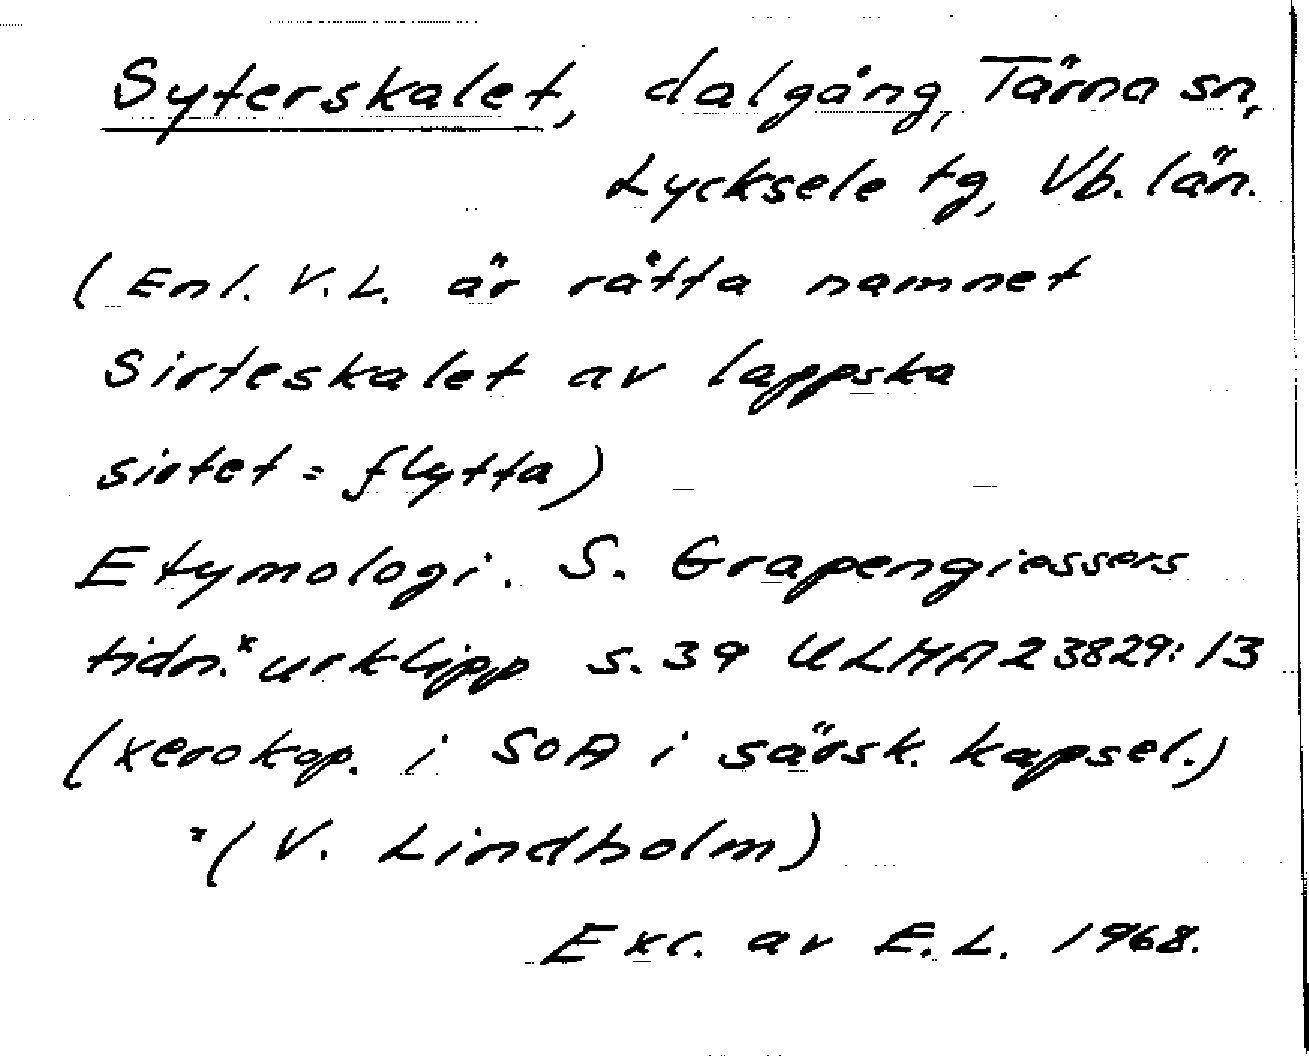 Syterskalet, dalgång, Tärna sn,
Lycksele tg, Vb. län.
(Enl. V.L. är rätta namnet
Sirteskalet av lappska
sirtet = flytta)
Etymologi. S. Grapengiessers
tidn.* urklipp s. 39 ULMA 23829:13
(xerokop. i SOA i särsk. kapsel.)
*(V. Lindholm)
Exc. av E.L. 1968.